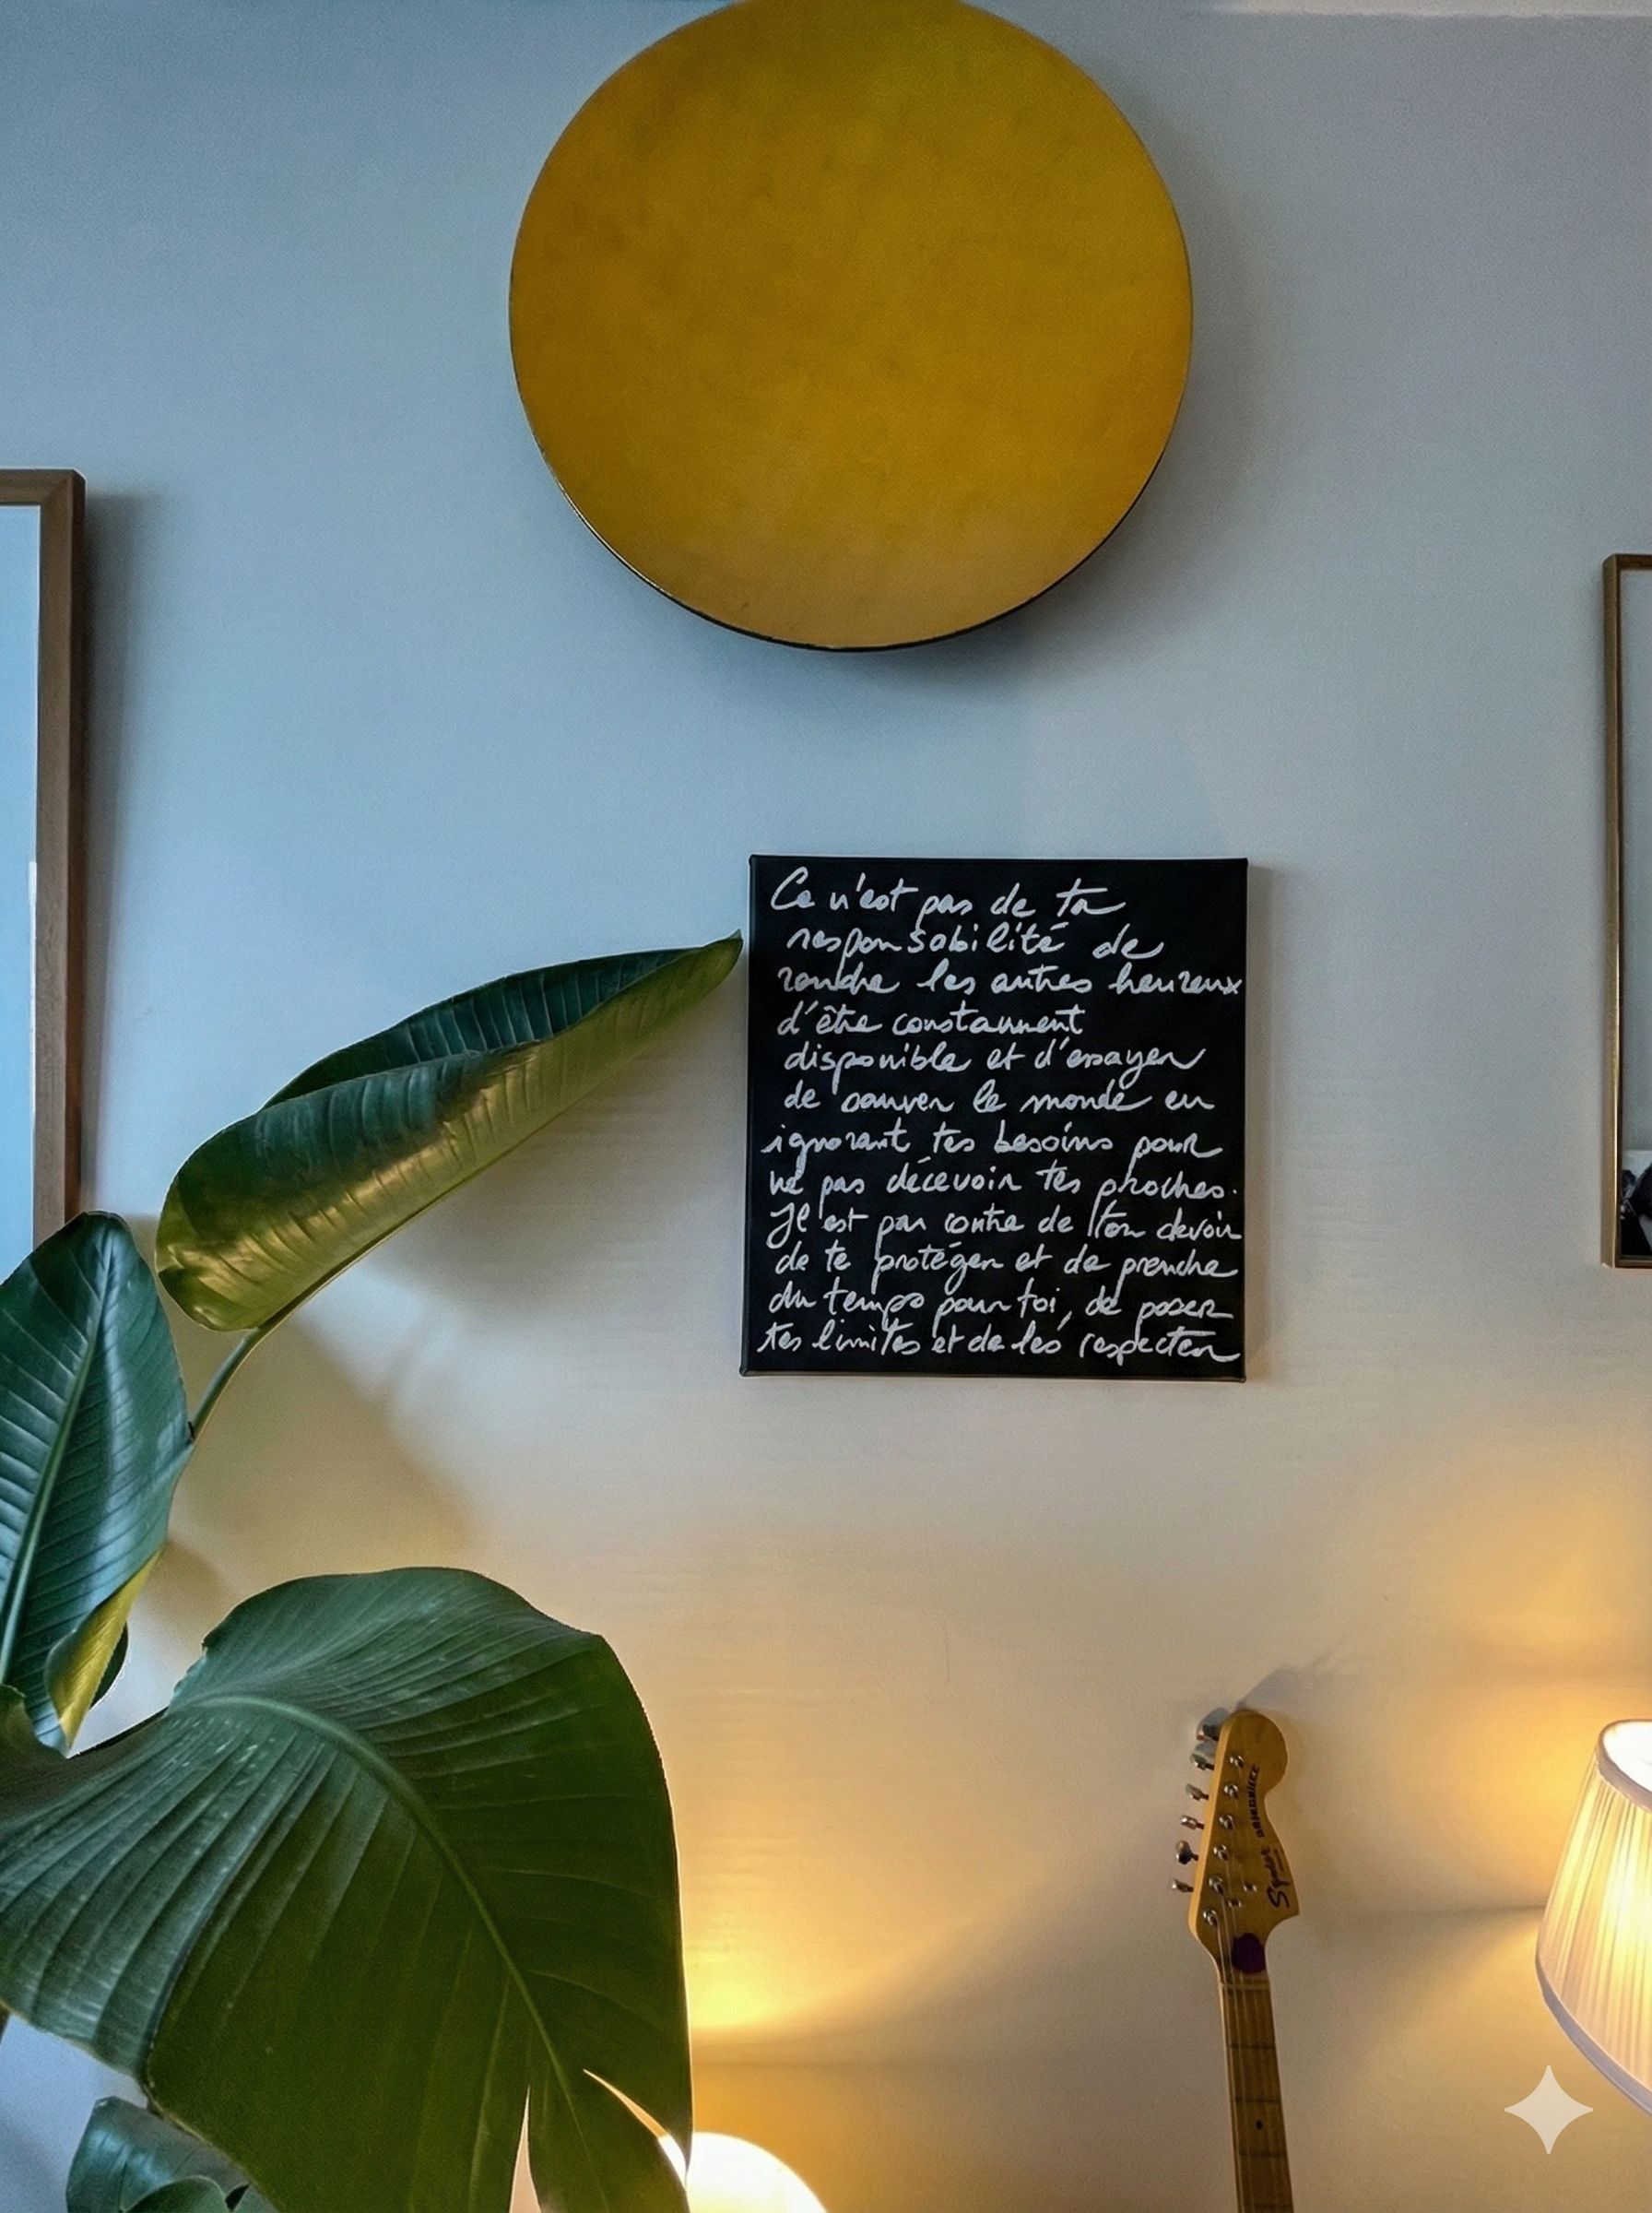 Ce n'est pas de ta
responsabilité de
rendre les autres heureux
d'être constamment
disponible et d'essayer
de sauver le monde en
ignorant tes besoins pour
ne pas décevoir tes proches.
Il est par contre de ton devoir
de te protéger et de prendre
du temps pour toi, de poser
tes limites et de les respecter
Squier